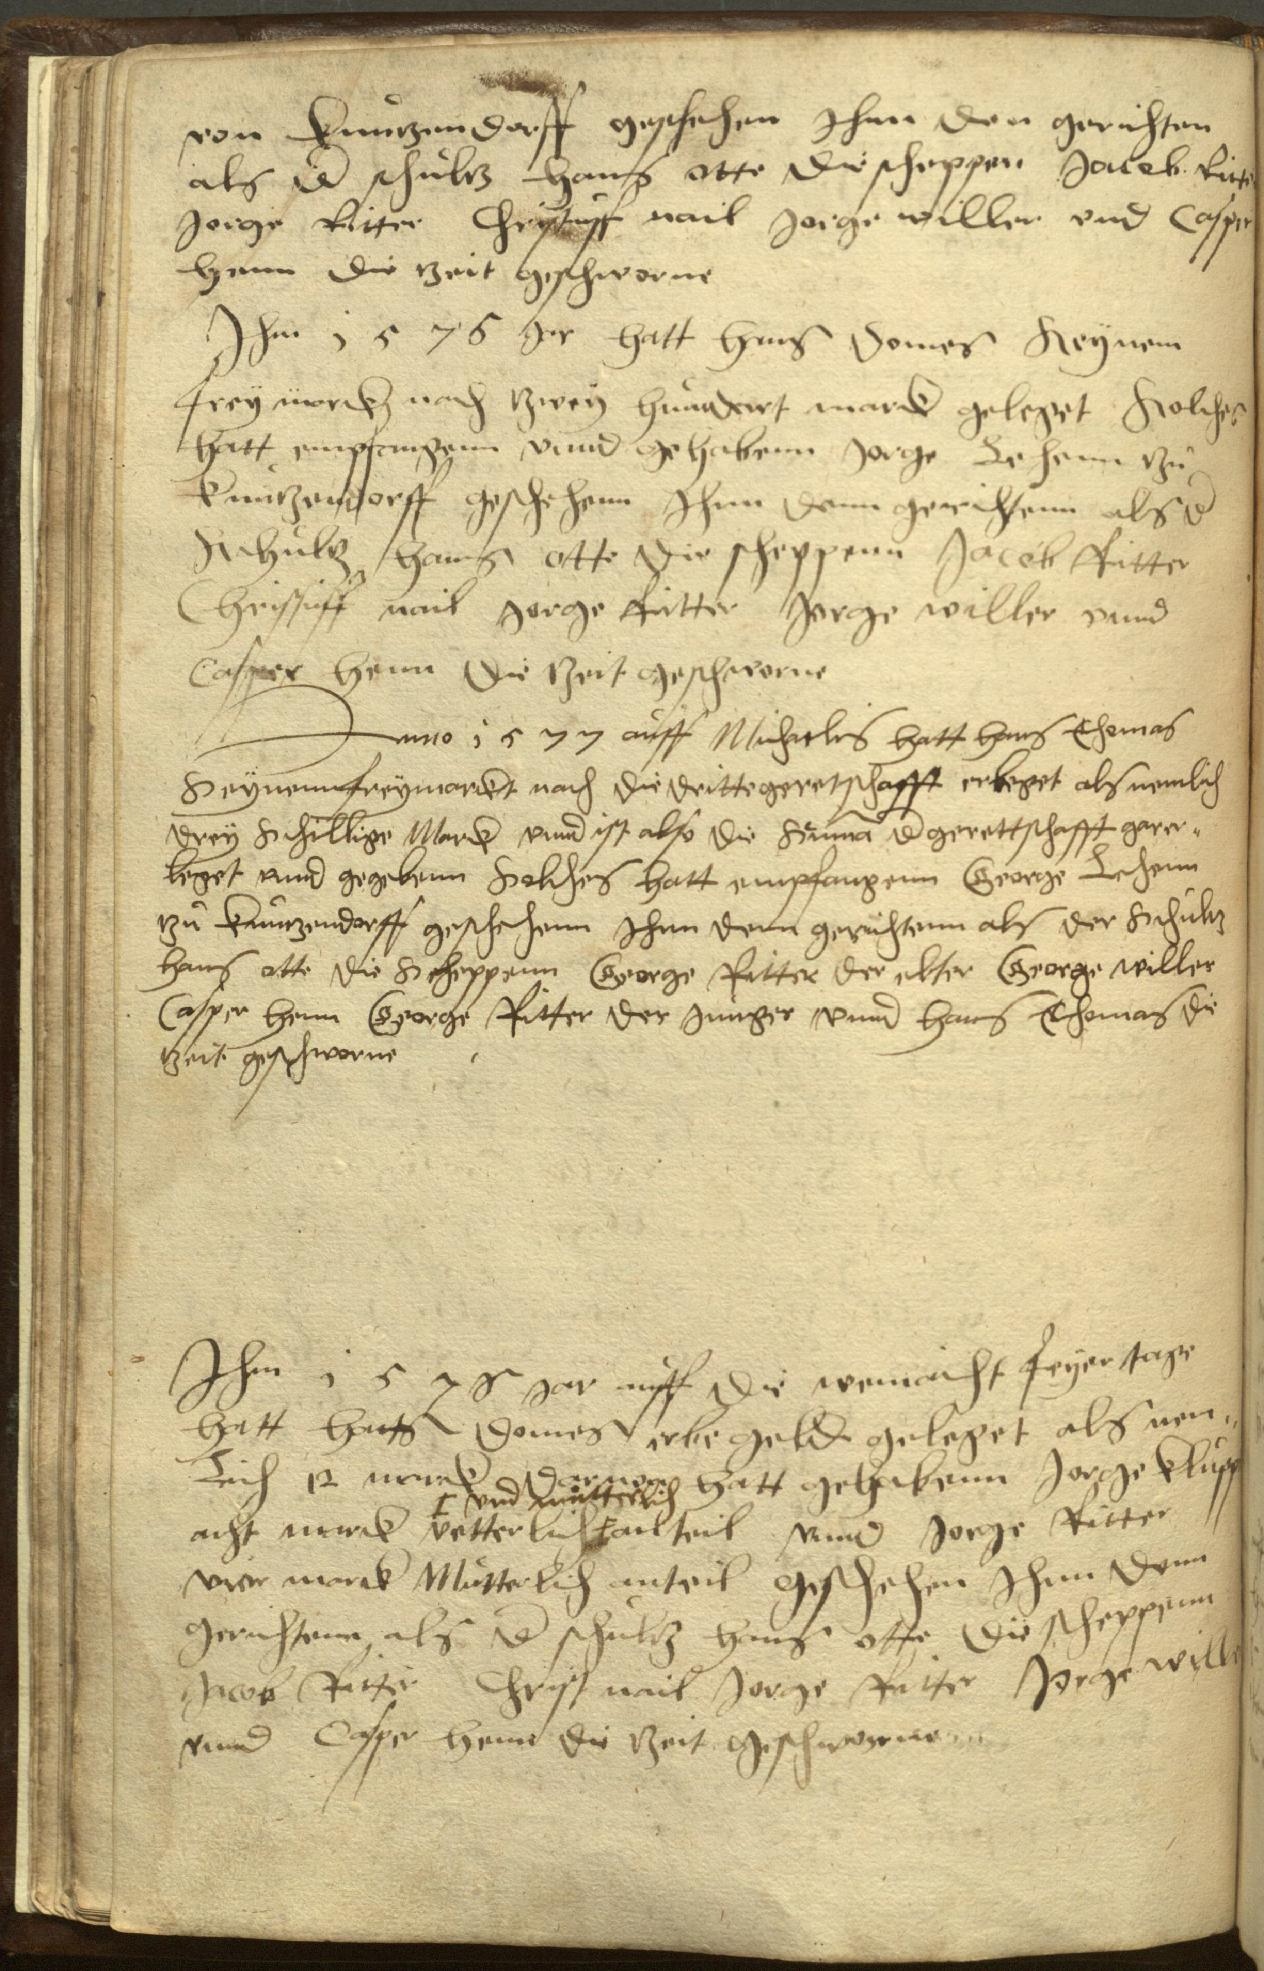 von Kuntzendorff geschehen Ihnn den gerichten
als d schultz Hans otte die scheppen Jacob Ritter
Jorge Ritter Christuff nail Jorge willer vnd Casper
henn die tzeit geschworne
Ihm 1 5 7 6 Jar hatt Hans Domes Seÿnem
freÿ marckt nach tzweÿ hundert marck geleget Solches
hatt empfangenn vnnd gehabenn Jorge Lehenn tzu
Kuntzendorff geschehenn Ihnn denn gerichtenn als d
Schultz Hans otte die scheppenn Jacob Ritter
Christuff nail Jorge Ritter Jorge willer vnnd
Casper henn die tzeit geschworne
Anno 1 5 7 7 auff Michaelis hatt hans Thomas
Seÿnenn freÿmarckt nach die dritte geretschafft erleget als nemlich
dreÿ Schillige Marck vnnd ist also die Suma d gerettschafft garer-
leget vnnd gegebenn Solches hatt empfangenn George Lehenn
tzu Kuntzendorff geschehenn Ihnn denn gerichtenn als der Schultz
hans otte die Scheppenn George Ritter der elter George willer
Casper henn George Ritter der Junger vnnd hans Thomas die
tzeit geschworne
Ihm 1 5 7 6 Jar auff die weinacht feÿertage
hatt Hans Domes erbegeld geleget als nem-
Lich 12 marck Darvon hatt gehabenn Jorge Klupp
vnd mutterlich
acht marck vetterlich anteil vnnd Jorge Ritter
vier marck Mutterlich anteil geschehen Ihnn denn
gerichtenn als d schultz Hans otte die scheppenn
Jacob Ritter Christ nail Jorge Ritter Jorge wille
vnnd Casper henn die tzeit geschworne